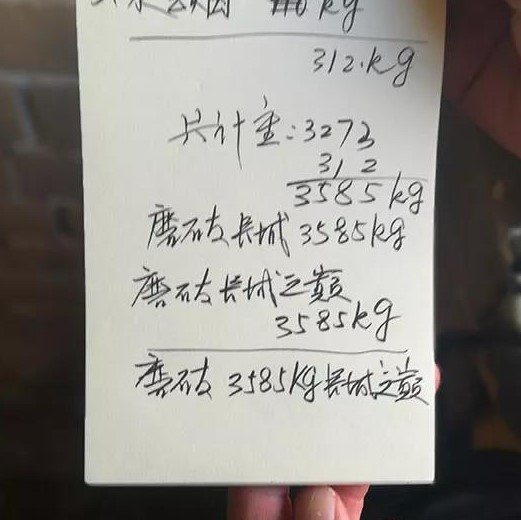 kg
312.kg
共计重:3273
312
3585kg
磨砖长城3585kg
磨砖长城之巅
3585kg
磨砖 3585Kg长城之巅